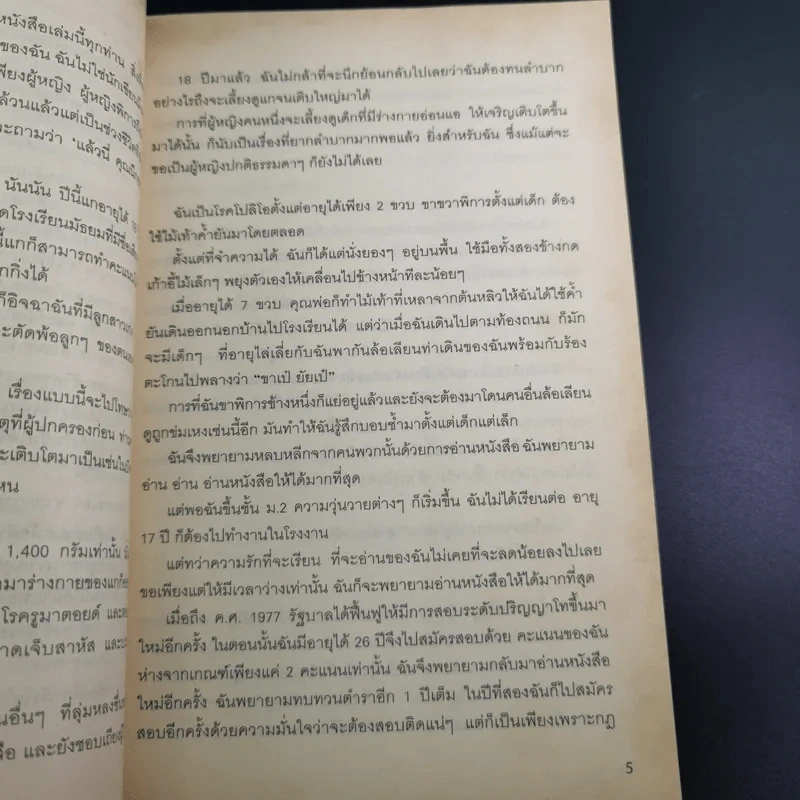 หนังสือเล่มนี้ทุกท่าน
ของฉัน ฉันไม่ใช่นักเขียน
เพียงผู้หญิง ผู้หญิงพิการ
ล้วนแล้วแต่เป็นช่วงชีวิต
จะถามว่า 'แล้วนี่ คุณ
นันนัน ปีนี้แกอายุได้
โรงเรียนมัธยมที่มีชื่อ
นี้แกก็สามารถทำคะแนน
กกิ่งได้
ก็อิจฉาฉันที่มีลูกสาว
ะตัดพ้อลูกๆ ของตน
เรื่องแบบนี้จะไปโทษ
ตุที่ผู้ปกครองก่อน
ะเติบโตมาเป็นเช่นใน
หน
1,400 กรัมเท่านั้น
ามาร่างกายของแกก็
โรครูมาตอยด์ และ
าดเจ็บสาหัส และ
นอื่นๆ ที่สุ่มหลง
สือ และยังชอบเถียง
18 ปีมาแล้ว ฉันไม่กล้าที่จะนึกย้อนกลับไปเลยว่าฉันต้องทนลำบาก
อย่างไรถึงจะเลี้ยงดูแกจนเติบใหญ่มาได้
การที่ผู้หญิงคนหนึ่งจะเลี้ยงดูเด็กที่มีร่างกายอ่อนแอ ให้เจริญเติบโตขึ้น
มาได้นั้น ก็นับเป็นเรื่องที่ยากลำบากมากพอแล้ว ยิ่งสำหรับฉัน ซึ่งแม้แต่จะ
ขอเป็นผู้หญิงปกติธรรมดาๆ ก็ยังไม่ได้เลย
ฉันเป็นโรคโปลิโอตั้งแต่อายุได้เพียง 2 ขวบ ขาขวาพิการตั้งแต่เด็ก ต้อง
ใช้ไม้เท้าค้ำยันมาโดยตลอด
ตั้งแต่ที่จำความได้ ฉันก็ได้แต่นั่งยองๆ อยู่บนพื้น ใช้มือทั้งสองข้างกด
เก้าอี้ไม้เล็กๆ พยุงตัวเองให้เคลื่อนไปข้างหน้าทีละน้อยๆ
เมื่ออายุได้ 7 ขวบ คุณพ่อก็ทำไม้เท้าที่เหลาจากต้นหลิวให้ฉันได้ใช้ค้ำ
ยันเดินออกนอกบ้านไปโรงเรียนได้ แต่ว่าเมื่อฉันเดินไปตามท้องถนน ก็มัก
จะมีเด็กๆ ที่อายุไล่เลี่ยกับฉันพากันล้อเลียนท่าเดินของฉันพร้อมกับร้อง
ตะโกนไปพลางว่า "ขาเป๋ ยัยเป๋"
การที่ฉันขาพิการข้างหนึ่งก็แย่อยู่แล้วและยังจะต้องมาโดนคนอื่นล้อเลียน
ดูถูกข่มเหงเช่นนี้อีก มันทำให้ฉันรู้สึกบอบช้ำมาตั้งแต่เด็กแต่เล็ก
ฉันจึงพยายามหลบหลีกจากคนพวกนั้นด้วยการอ่านหนังสือ ฉันพยายาม
อ่าน อ่าน อ่านหนังสือให้ได้มากที่สุด
แต่พอฉันขึ้นชั้น ม.2 ความวุ่นวายต่างๆ ก็เริ่มขึ้น ฉันไม่ได้เรียนต่อ อายุ
17 ปี ก็ต้องไปทำงานในโรงงาน
แต่ทว่าความรักที่จะเรียน ที่จะอ่านของฉันไม่เคยที่จะลดน้อยลงไปเลย
ขอเพียงแต่ให้มีเวลาว่างเท่านั้น ฉันก็จะพยายามอ่านหนังสือให้ได้มากที่สุด
เมื่อถึง ค.ศ. 1977 รัฐบาลได้ฟื้นฟูให้มีการสอบระดับปริญญาโทขึ้นมา
ใหม่อีกครั้ง ในตอนนั้นฉันมีอายุได้ 26 ปีจึงไปสมัครสอบด้วย คะแนนของฉัน
ห่างจากเกณฑ์เพียงแค่ 2 คะแนนเท่านั้น ฉันจึงพยายามกลับมาอ่านหนังสือ
ใหม่อีกครั้ง ฉันพยายามทบทวนตำราอีก 1 ปีเต็ม ในปีที่สองฉันก็ไปสมัคร
สอบอีกครั้งด้วยความมั่นใจว่าจะต้องสอบติดแน่ๆ แต่ก็เป็นเพียงเพราะกฎ
5